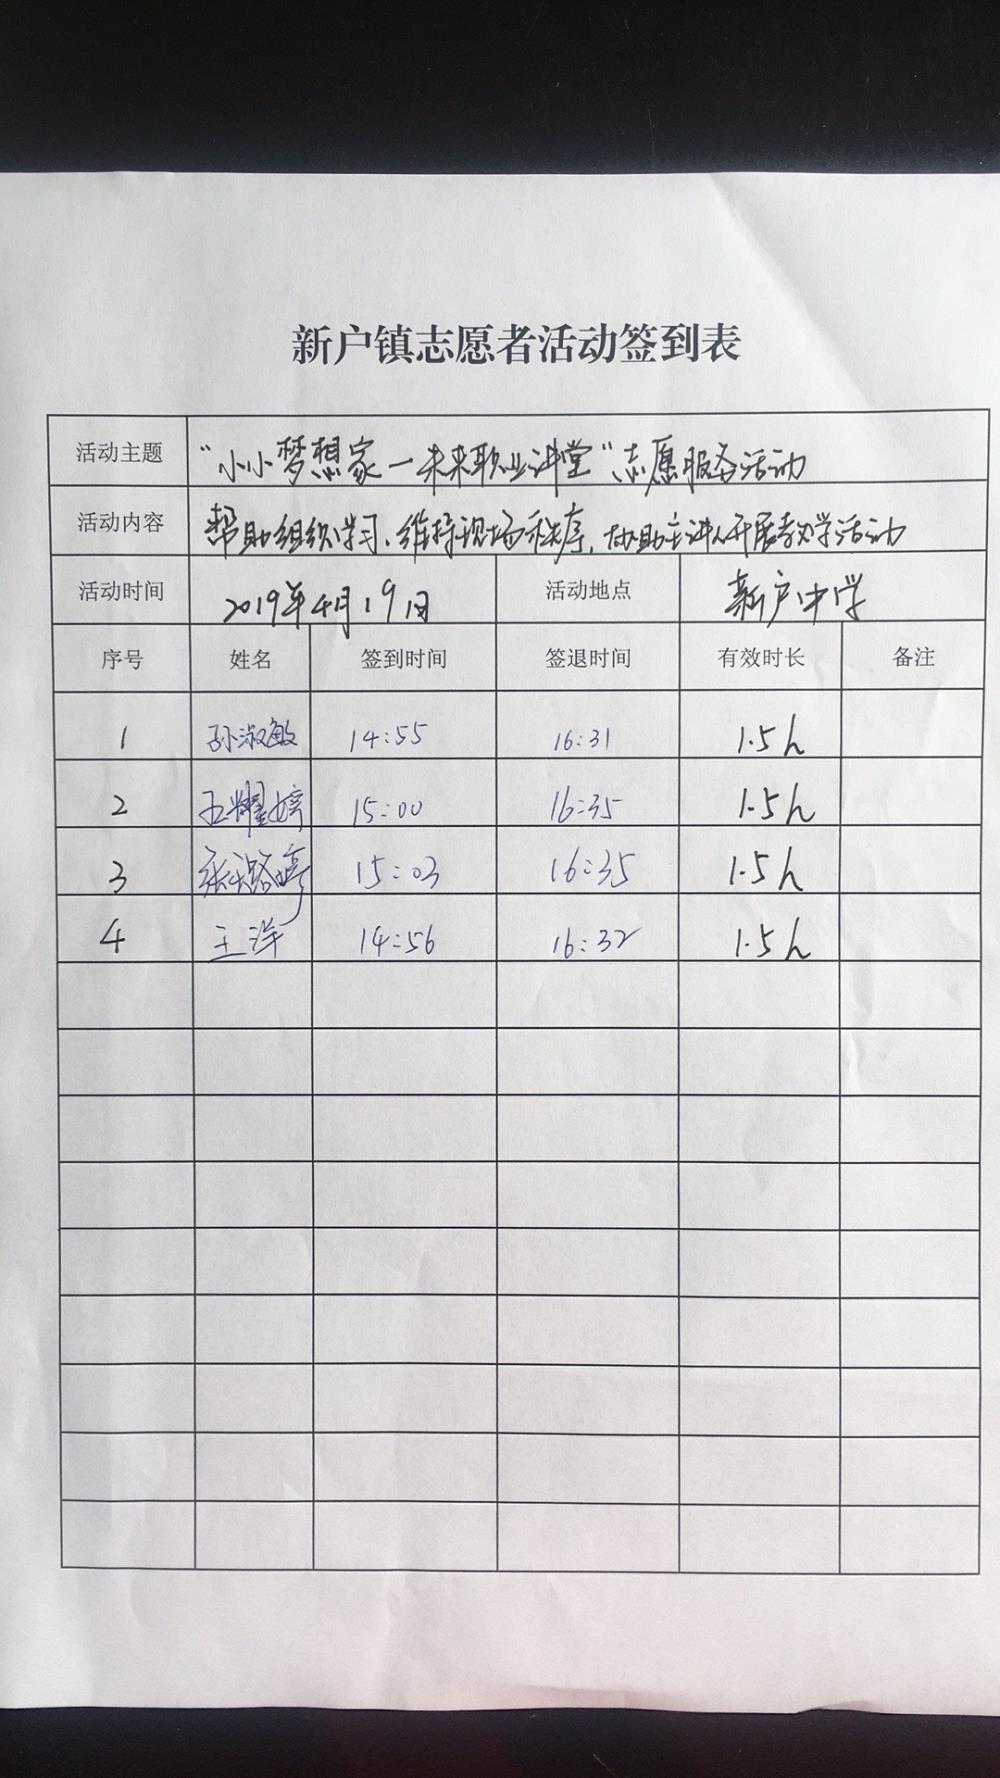 新户镇志愿者活动签到表
活动主题 “小小梦想家一未来职业讲堂”志愿服务活动
活动内容 帮助组织学习、维持现场秩序,协助主讲人开展教学活动
活动时间 2019年4月19日 活动地点 新户中学
序号 姓名 签到时间 签退时间 有效时长 备注
1 孙淑敏 14:55 16:31 1.5h
2 王耀婷 15:00 16:35 1.5h
3 张路婷 15:03 16:35 1.5h
4 王洋 14:56 16:32 1.5h